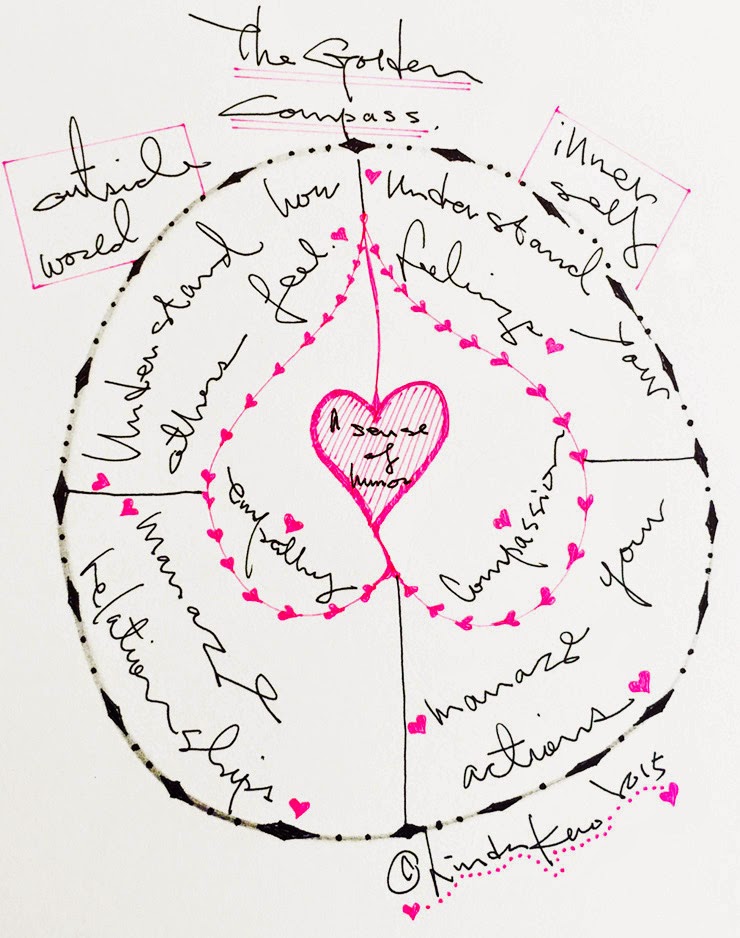 The Golden
Compass.
outside
world
inner
self
Understand how
others feel.
Understand your
feelings
A sense
of
humor
empathy
Compassion
Manage
relationships
manage your
actions
2015